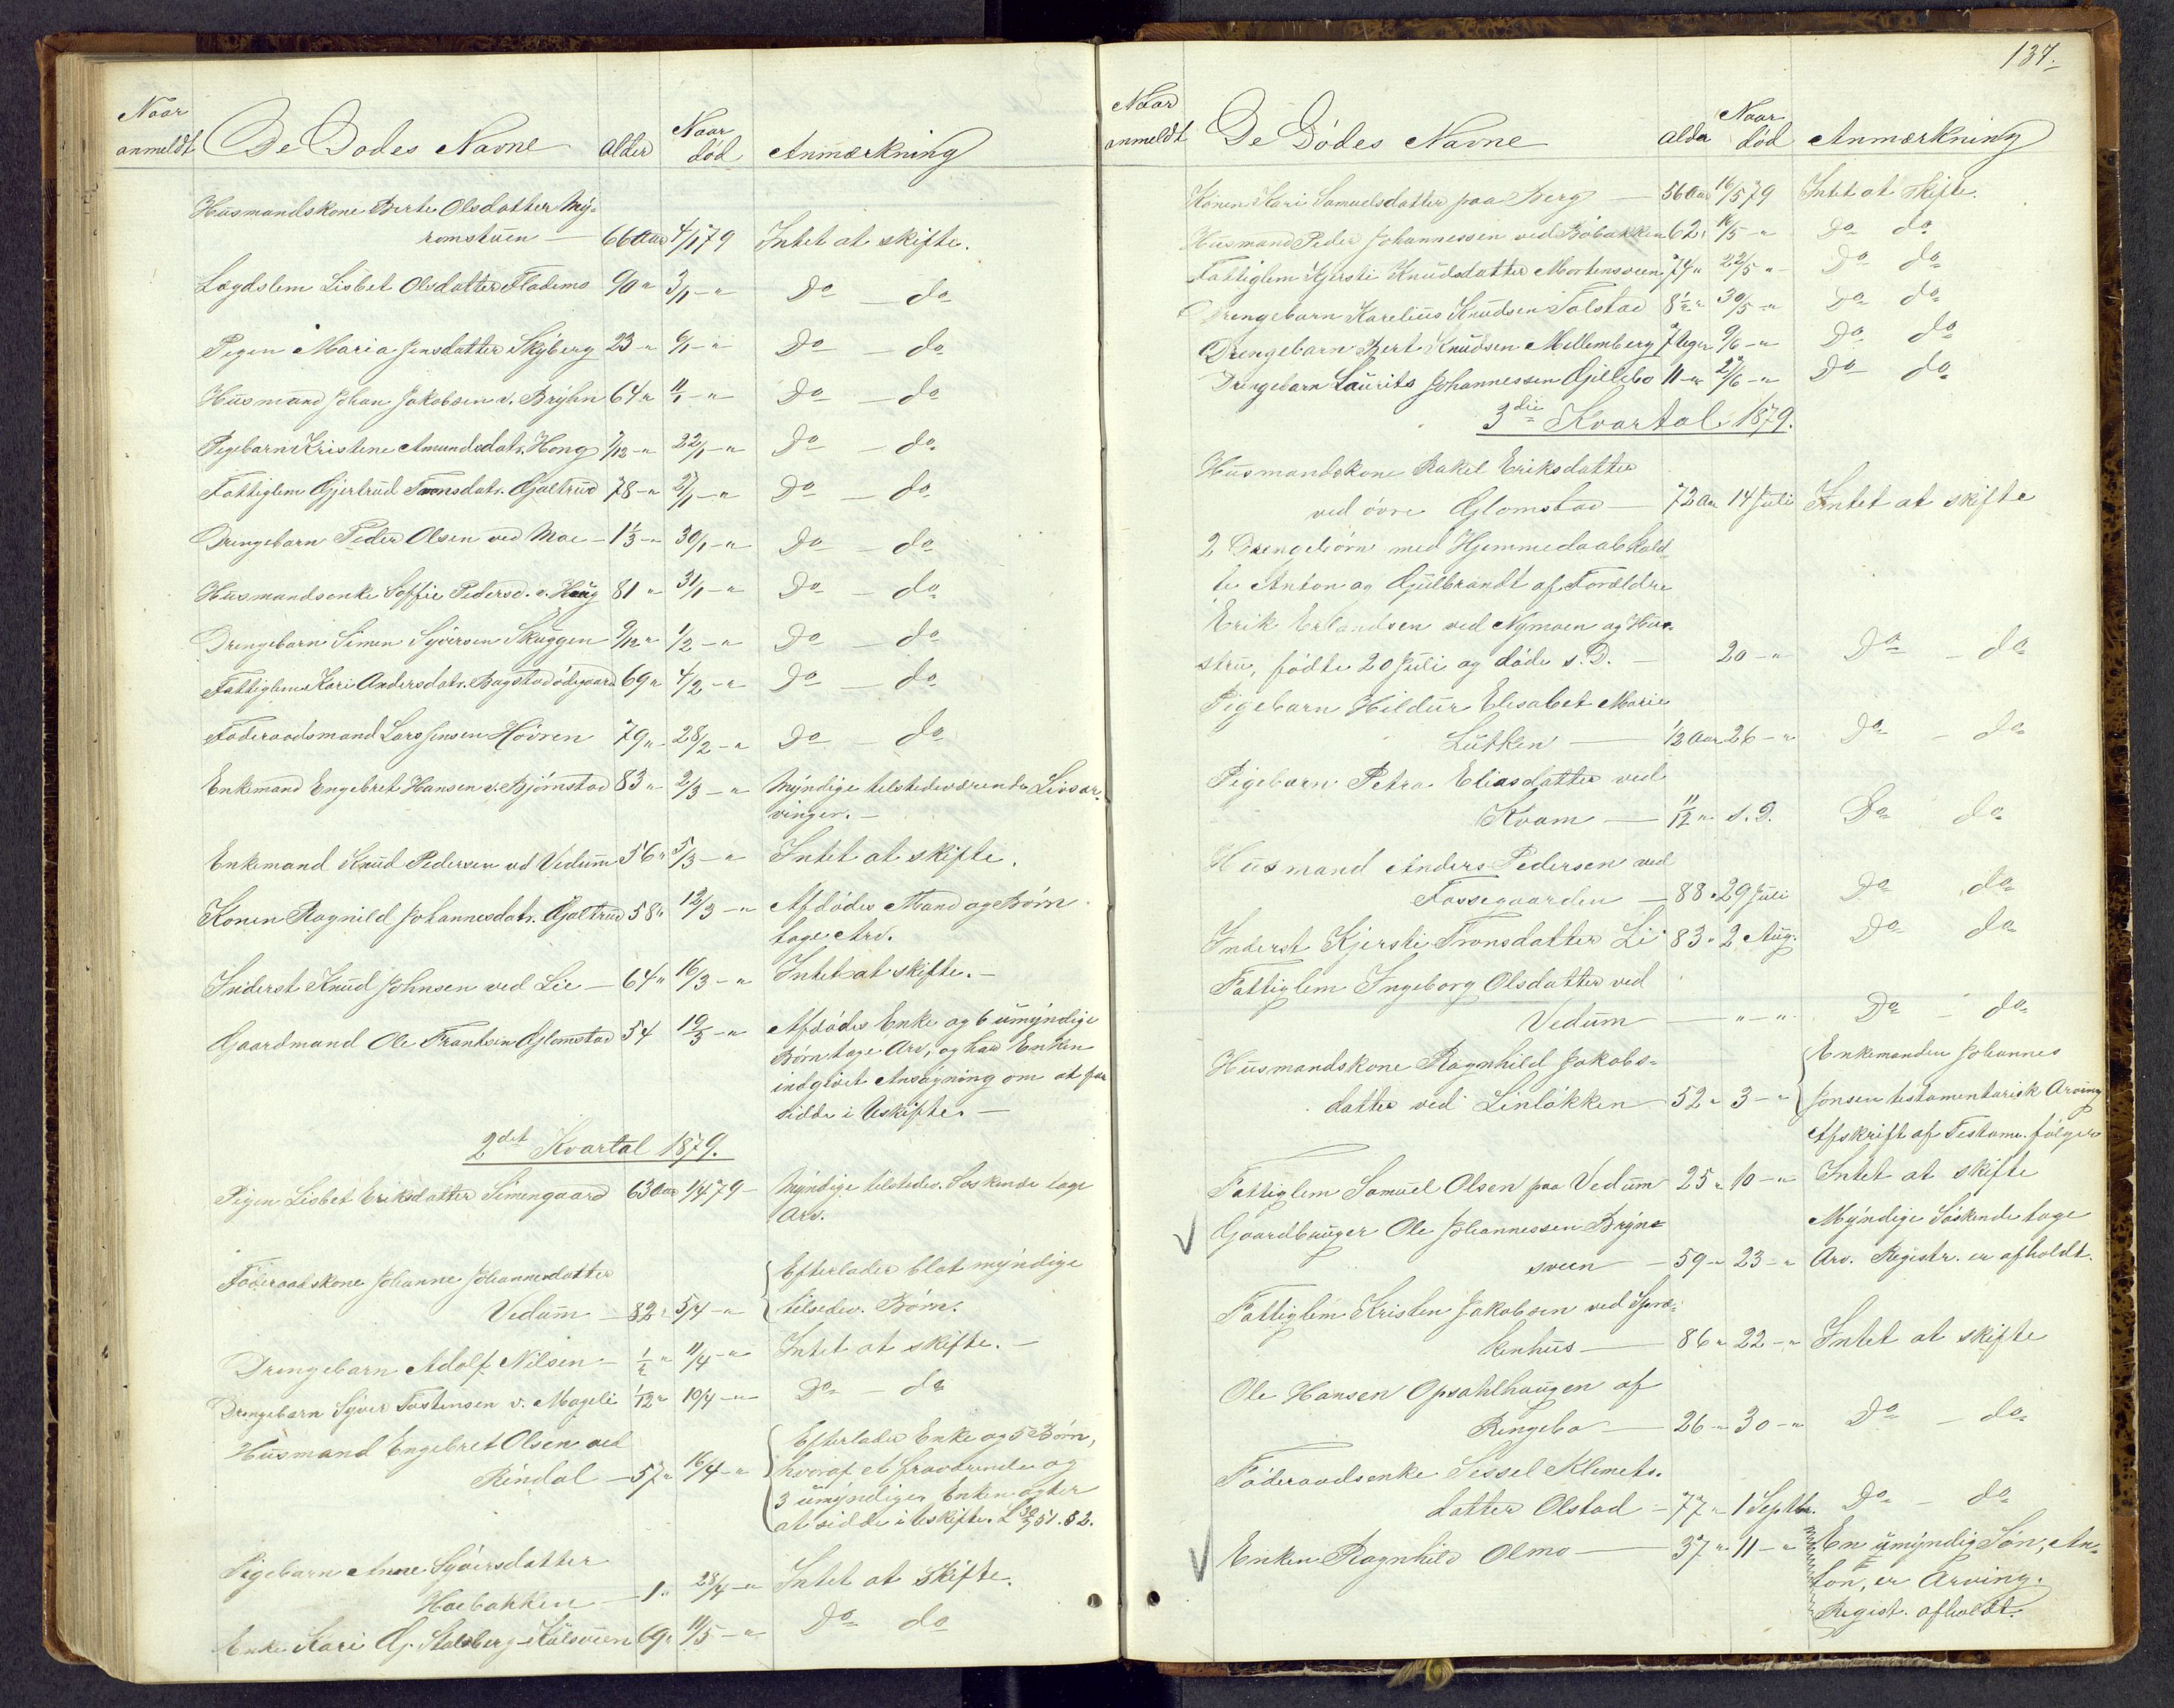 Naar anmeldt De Dødes Navne Alder Naar død Anmærkning
Husmandskone Berte Olsdatter My-
romstuen — 66 Aar 4/1 79 Intet at skifte.
Lægdslem Lisbet Olsdatter Flademo 90 " 3/1 - " Do — do
Pigen Maria Jensdatter Skyberg 23 - " 6/1 - " Do — do
Husmand Johan Jakobsen v. Bryhn 64 " 11/1 - " Do — do
Pigebarn Kristine Amundsdatr. Hong 7/12 - " 22/1 - " Do — do
Fattiglem Gjertrud Tronsdatr. Gjaltrud 78 - " 27/1 - " Do — do
Drengebarn Peder Olsen ved Moe - 1 1/3 - " 30/1 - " Do — do
Husmandsenke Soffie Pedersd. v. Haug 81 " 31/1 - " Do — do
Drengebarn Simen Syversen Skuggen 9/12 " 1/2 - " Do — do
Fattiglem Kari Andersdatr. Bagstadødegaard 69 " 4/2 - " Do — do
Føderaadsmand Lars Jensen Høvren 79 " 28/2 - " Do — do
Enkemand Engebret Hansen v. Bjørnstad 83 " 2/3 - " Myndige tilstedeværende Livsar-
vinger. —
Enkemand Knud Pedersen vd Vedum 56 " 5/3 - " Intet at skifte.
Konen Ragnild Johannesdatr. Gjaltrud 58 " 12/3 - " Afdødes Mand og Børn
tage Arv.
Inderst Knud Johnsen ved Lie — 64 " 16/3 - " Intet at skifte. —
Gaardmand Ole Frantsen Glomstad 54 19/3 - " Afdødes Enke og 6 umyndige
Børn tage Arv, og har Enken
indgivet Ansøgning om at faa
sidde i Uskifte. —
2det Kvartal 1879.
Pigen Lisbet Eriksdatter Simengaard 63 Aar 1/4 79 - Myndige tilstedev. Søskende tage
Arv.
Føderaadskone Johanne Johannesdatter
Vedum — 82 " 5/4 - " Efterlader blot myndige
tilstedev. Børn.
Drengebarn Adolf Nilsen — 1/2 " 11/4 - " Intet at skifte. —
Drengebarn Syver Tostensen v. Mageli 1/12 " 19/4 - " Do — do
Husmand Engebret Olsen ved
Rindal — 57 " 16/4 - " Efterlader Enke og 5 Børn,
hvoraf et fraværende og
3 umyndige. Enken agter
at sidde i Uskifte.
Pigebarn Anne Syversdatter
Hoebakken — 1 " 28/4 - " Intet at skifte.
Enke Kari G. Stalsberg 69 " 11/5 - " Do do
137.
Naar anmeldt De Dødes Navne Alder Naar død Anmærkning
Konen Kari Samuelsdatter paa Berg — 56 Aar 16/5 79 Intet at skifte.
Husmand Peder Johannessen ved Bøbakken 62 " 16/5 - " Do do
Fattiglem Kjersti Knudsdatter Mortensveen 74 " 22/5 " - Do do
Drengebarn Karelius Knudsen Tolstad 8 1/2 " 30/5 - " Do do
Drengebarn Bert Knudsen Mellemberg 7 Uger 9/6 - " Do do
Drengebarn Laurits Johannessen Gillebo 11 - " 27/6 - " Do do
3die Kvartal 1879.
Husmandskone Rakel Eriksdatter
ved øvre Glomstad — 72 Aar 14 Juli Intet at skifte
2 Drengebørn med Hjemmedaab kald-
te Anton og Gulbrandt af Forældre
Erik Erlandsen ved Nymoen og Hu-
stru, fødte 20 Juli og døde s. D. — 20 - " Do — do
Pigebarn Hildur Elisabet Marie
Lütken — 1/2 Aar 26 - " Do — do
Pigebarn Petra Eliasdatter ved
Kvam — 11/12 " s. D. Do do
Husmand Anders Pedersen ved
Fossegaarden — 88 " 29 Juli Do do
Inderst Kjersti Tronsdatter Li 83 " 2 Aug. Do do
Fattiglem Ingeborg Olsdatter ved
Vedum — " - " Do — do
Husmandskone Ragnhild Jakobs-
datter ved Linløkken 52 " 3 - " Enkemanden Johannes
Jonsen testamentarisk Arving
Afskrift af Testam. følger
Fattiglem Samuel Olsen paa Vedum 25 " 10 - " Intet at skifte
Gaardbruger Ole Johannessen Bryns-
sveen — 59 - " 23 - " Myndige Søskende tage
Arv. Registr. er afholdt.
Fattiglem Kristen Jakobsen ved
kenhus — 86 " 22 - " Intet at skifte
Ole Hansen Opsahlhaugen af
Ringebo — 26 - " 30 - " Do — do
Føderaadsenke Sissel Klemets-
datter Olstad — 77 " 1 Septbr. Do — do
Enken Ragnhild Olmo — 37 " 11 - " En umyndig Søn, An-
ton, er Arving.
Regist. afholdt.